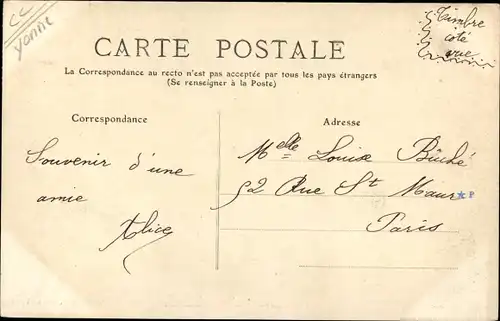 CC
Yonne
Timbre
côté
vue
CARTE POSTALE
La Correspondance au recto n'est pas acceptée par tous les pays étrangers
(Se renseigner à la Poste)
Correspondance
Souvenir d'une
amie
Alice
Adresse
Melle Louise Bûché
52 Rue St Maur
Paris
P